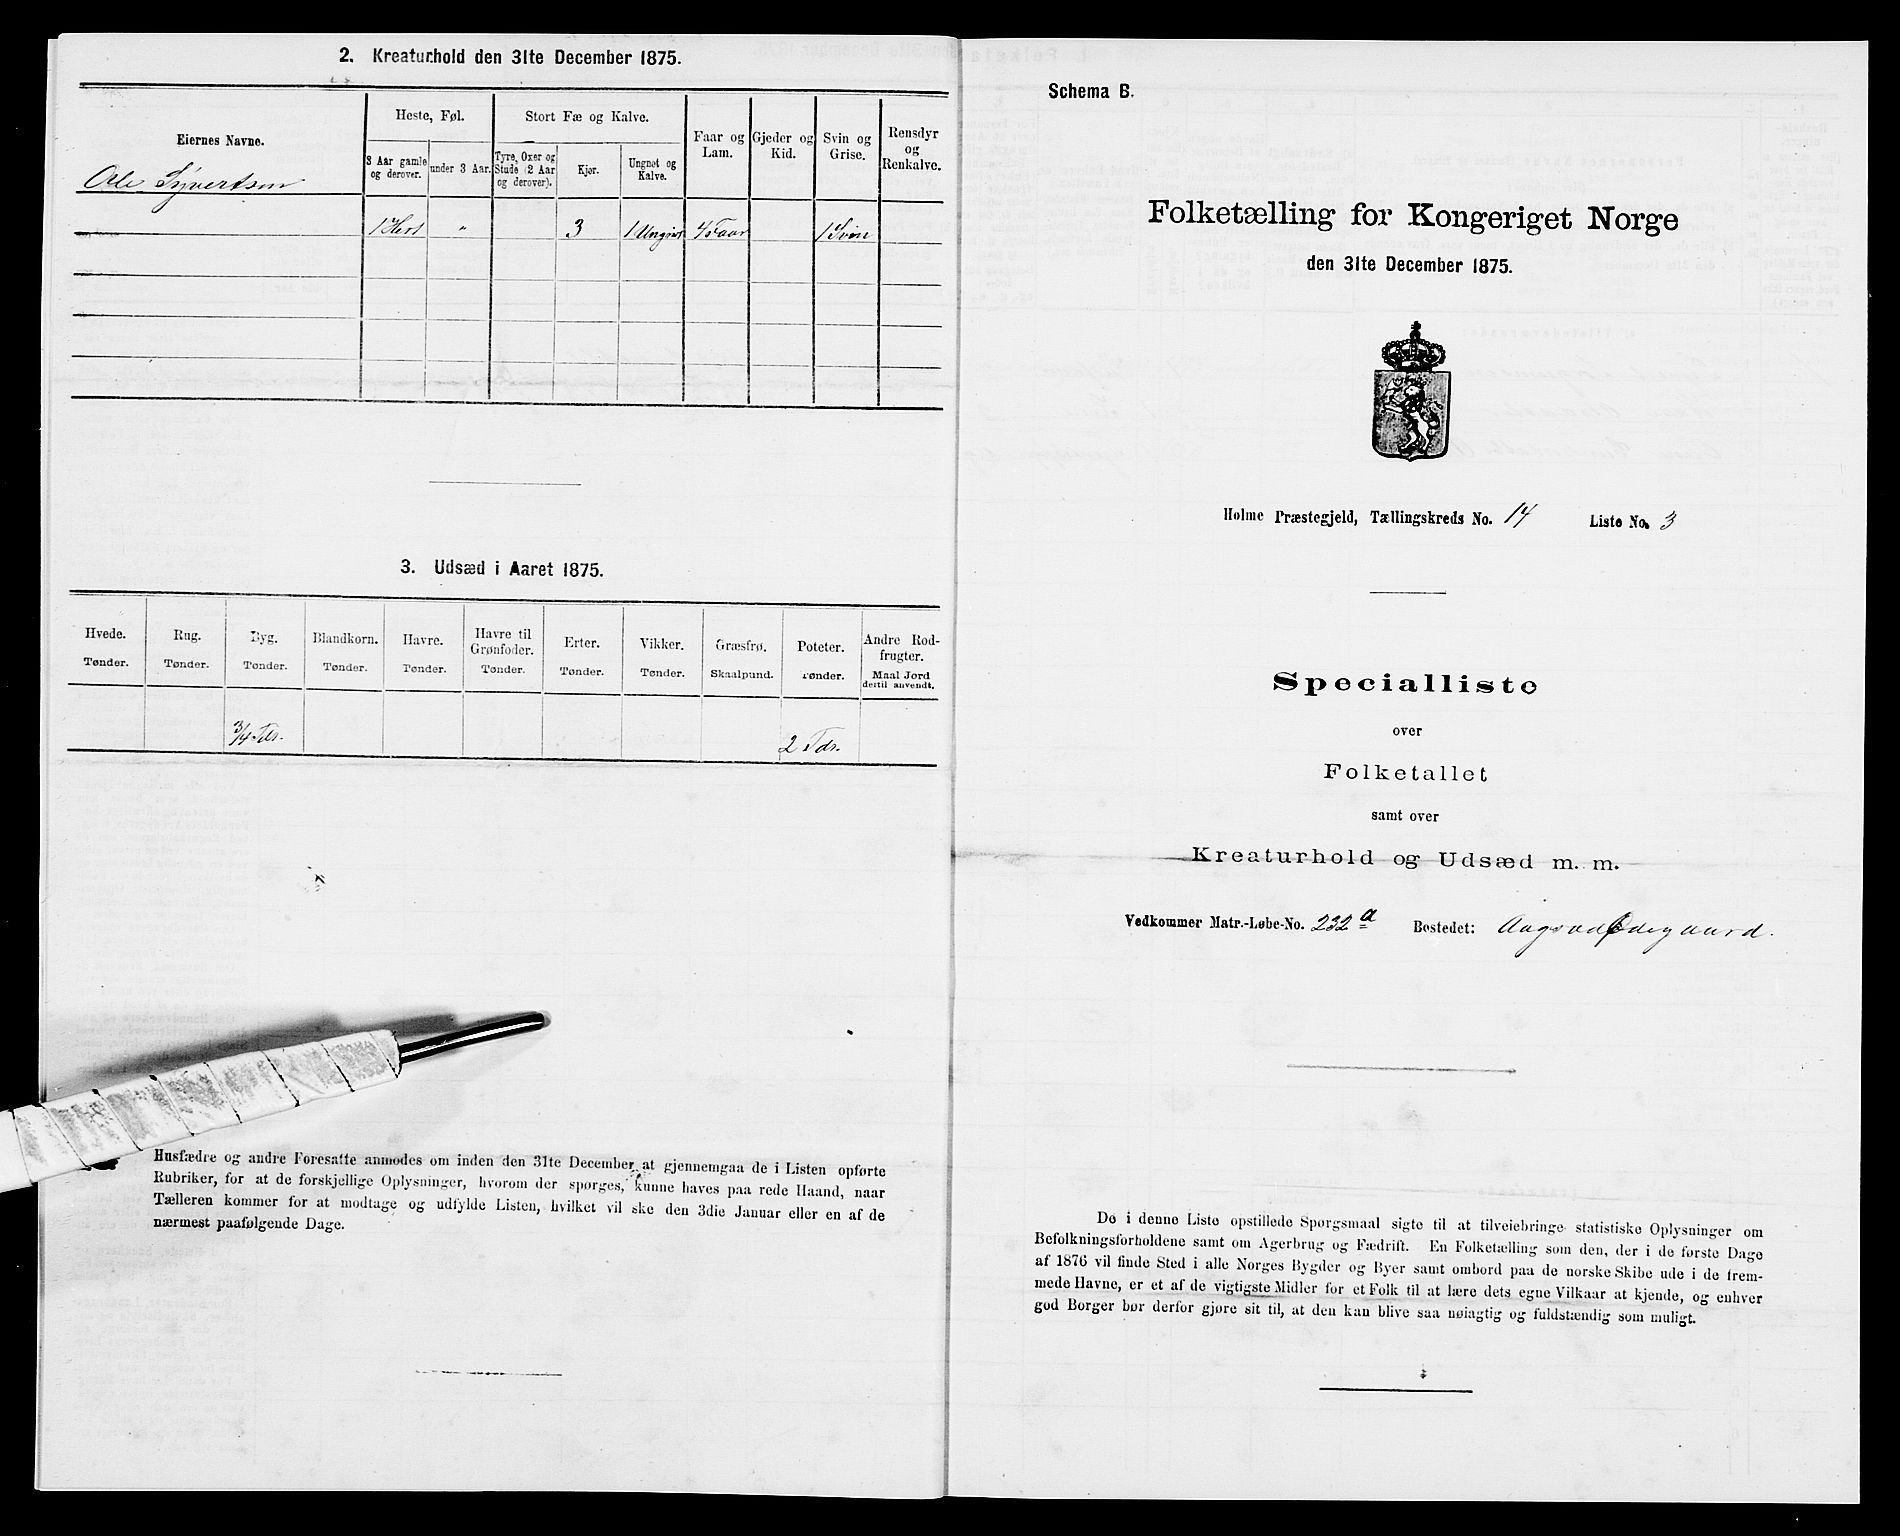 2. Kreaturhold den 31te December 1875.
Eiernes Navne.
Heste, Føl.
Stort Fæ og Kalve.
Faar og Lam.
Gjeder og Kid.
Svin og Grise.
Rensdyr og Renkalve.
3 Aar gamle og derover.
under 3 Aar.
Tyre, Oxer og Stude (2 Aar og derover).
Kjør.
Ungnøt og Kalve.
Ole Syvertsen
1 Hest " 3 4 Faar 1 Svin
3. Udsæd i Aaret 1875.
Hvede. Rug. Byg. Blandkorn. Havre. Havre til Grønfoder. Erter. Vikker. Græsfrø. Poteter. Andre Rodfrugter.
Tønder. Tønder. Tønder. Tønder. Tønder. Tønder. Tønder. Tønder. Skaalpund. Tønder. Maal Jord dertil anvendt.
3/4 Tdr. 2 Tdr.
Husfædre og andre Foresatte anmodes om inden den 31te December at gjennemgaa de i Listen opførte
Rubriker, for at de forskjellige Oplysninger, hvorom der spørges, kunne haves paa rede Haand, naar
Tælleren kommer for at modtage og udfylde Listen, hvilket vil ske den 3die Januar eller en af de
nærmest paafølgende Dage.
Schema B.
Folketælling for Kongeriget Norge
den 31te December 1875.
Holme Præstegjeld, Tællingskreds No. 14 Liste No. 3
Specialliste
over
Folketallet
samt over
Kreaturhold og Udsæd m. m.
Vedkommer Matr.-Løbe-No. 232 a Bostedet: Aagsvad Ødegaard.
De i denne Liste opstillede Spørgsmaal sigte til at tilveiebringe statistiske Oplysninger om
Befolkningsforholdene samt om Agerbrug og Fædrift. En Folketælling som den, der i de første Dage
af 1876 vil finde Sted i alle Norges Bygder og Byer samt ombord paa de norske Skibe ude i de frem-
mede Havne, er et af de vigtigste Midler for et Folk til at lære dets egne Vilkaar at kjende, og enhver
god Borger bør derfor gjøre sit til, at den kan blive saa nøiagtig og fuldstændig som muligt.